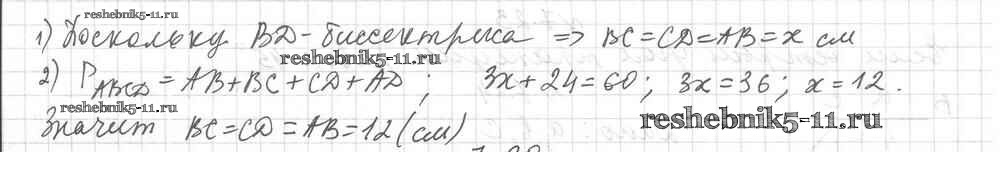 reshebnik5-11.ru
1) Поскольку BD - биссектриса => BC=CD=AB=x см
reshebnik5-11.ru
2) P_ABCD = AB+BC+CD+AD; 3x+24=60; 3x=36; x=12.
reshebnik5-11.ru
Значит BC=CD=AB=12(см)
reshebnik5-11.ru